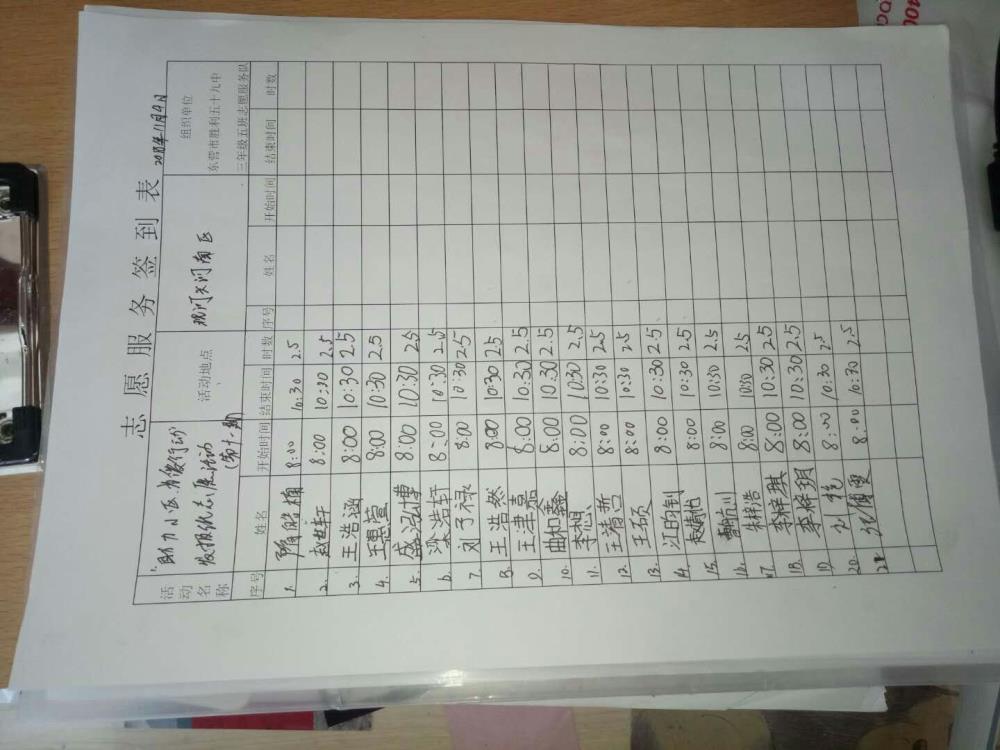 志愿服务签到表
活动名称
助力小区 有偿行动
发报纸志愿活动
活动地点
现河文河南区
组织单位
东营市胜利五十九中
三年级五班志愿服务队
序号 姓名 开始时间 结束时间 时数 序号 姓名 开始时间 结束时间 时数
1. 8:00 10:30 2.5
2. 8:00 10:30 2.5
3. 王浩涵 8:00 10:30 2.5
4. 王思萱 8:00 10:30 2.5
5. 盛泓博 8:00 10:30 2.5
6. 梁浩轩 8:00 10:30 2.5
7. 刘子禄 8:00 10:30 2.5
8. 王浩然 8:00 10:30 2.5
9. 王津嘉 8:00 10:30 2.5
10. 曲和鑫 8:00 10:30 2.5
11. 李想 8:00 10:30 2.5
12. 王清哲 8:00 10:30 2.5
13. 王硕 8:00 10:30 2.5
14. 8:00 10:30 2.5
15. 8:00 10:30 2.5
16. 8:00 10:30 2.5
17. 朱梓浩 8:00 10:30 2.5
18. 李梓琪 8:00 10:30 2.5
19. 李梓玥 8:00 10:30 2.5
20. 8:00 10:30 2.5
21. 8:00 10:30 2.5